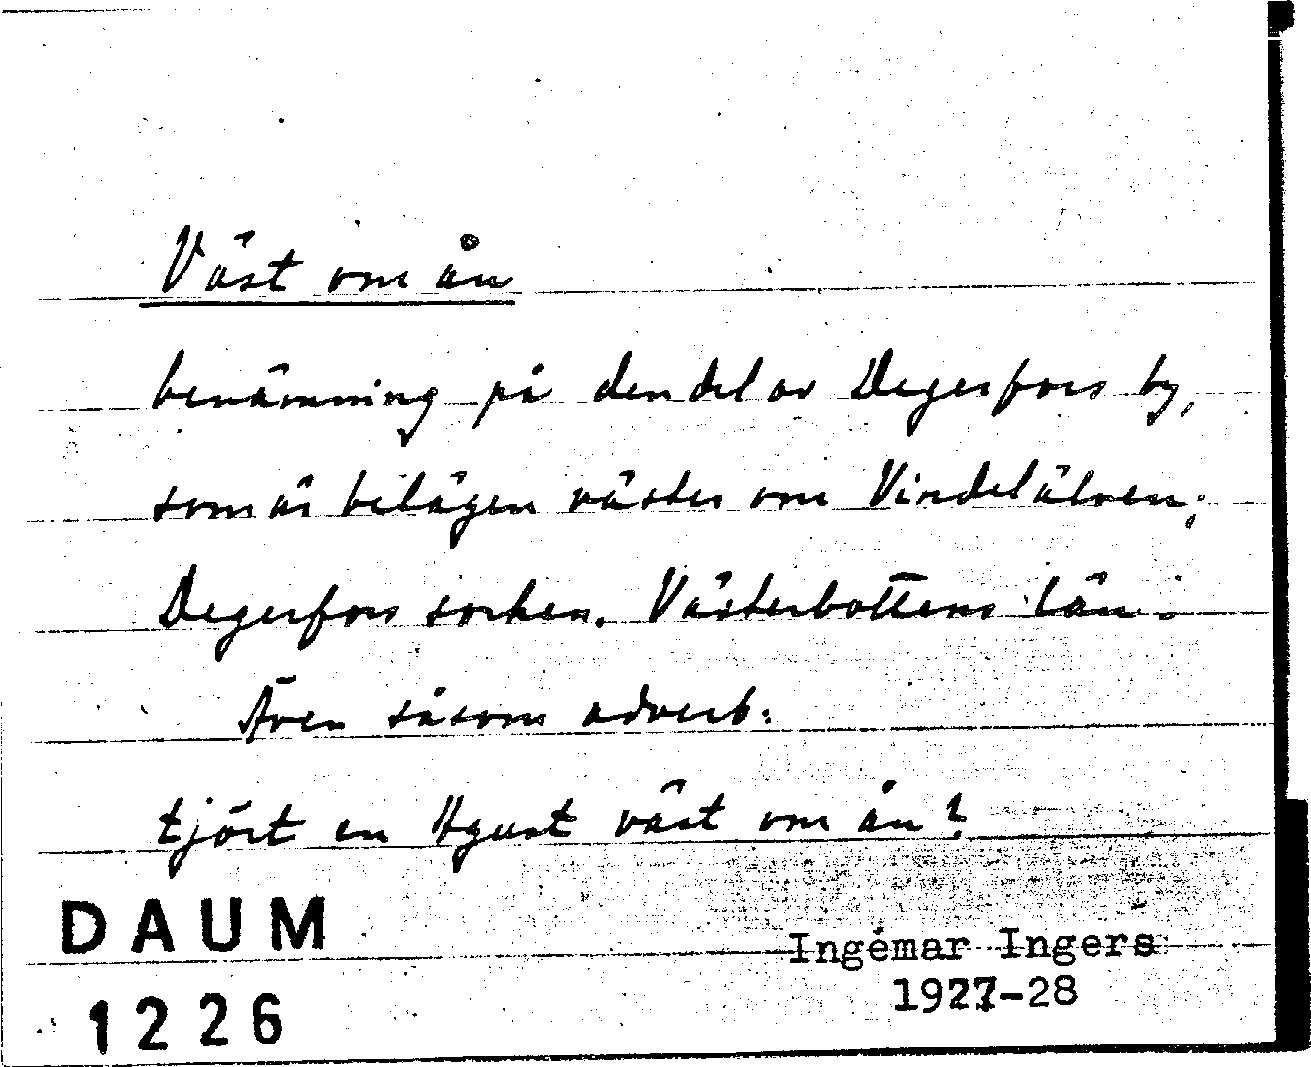 Väst om ån
benämning på den del av Degerfors by,
som är belägen väster om Vindelälven;
Degerfors socken. Västerbottens län.
Även såsom adverb:
tjört en Agust väst om ån?
DAUM
1226
Ingemar Ingers
1927-28